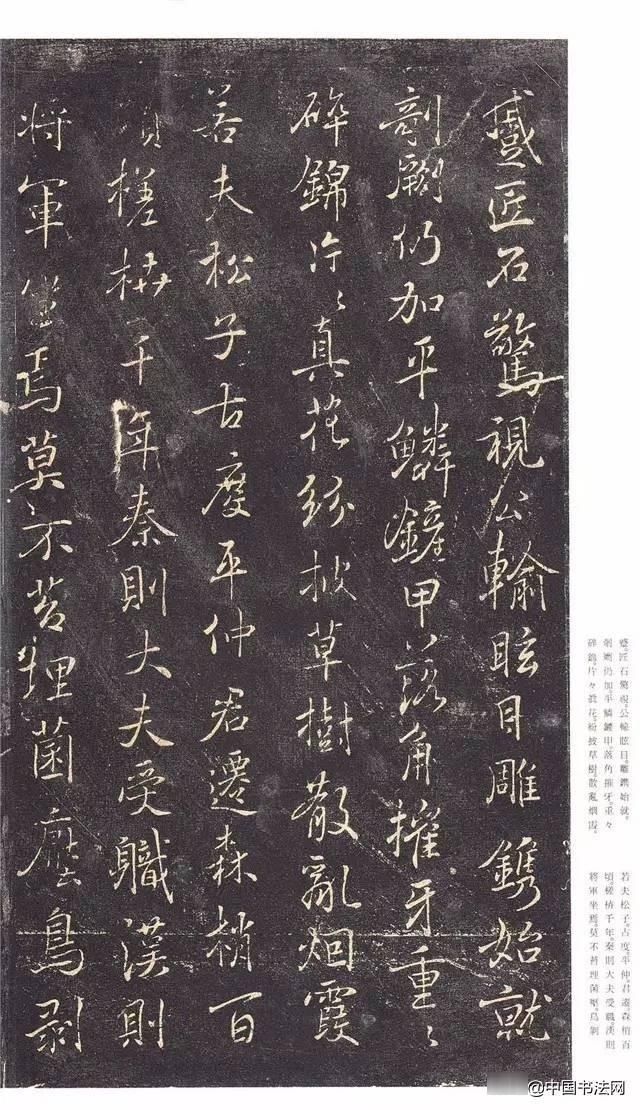 蹙匠石驚視公輸眩目雕鐫始就
剞劂仍加平鱗鏟甲落角摧牙重〻
碎錦片〻真花紛披草樹散亂烟霞
若夫松子古度平仲君遷森梢百
頃槎枿千年秦則大夫受職漢則
將軍坐焉莫不苔埋菌壓鳥剥
蹙。匠石驚視。公輸眩目。雕鐫始就。
剞劂仍加。平鱗鏟甲。落角摧牙。重々
碎錦。片々眞花。紛披草樹。散亂烟霞。
若夫松子。古度。平仲。君遷。森梢百
頃。槎枿千年。秦則大夫受職。漢則
將軍坐焉。莫不苔埋菌壓。鳥剝
@中国书法网